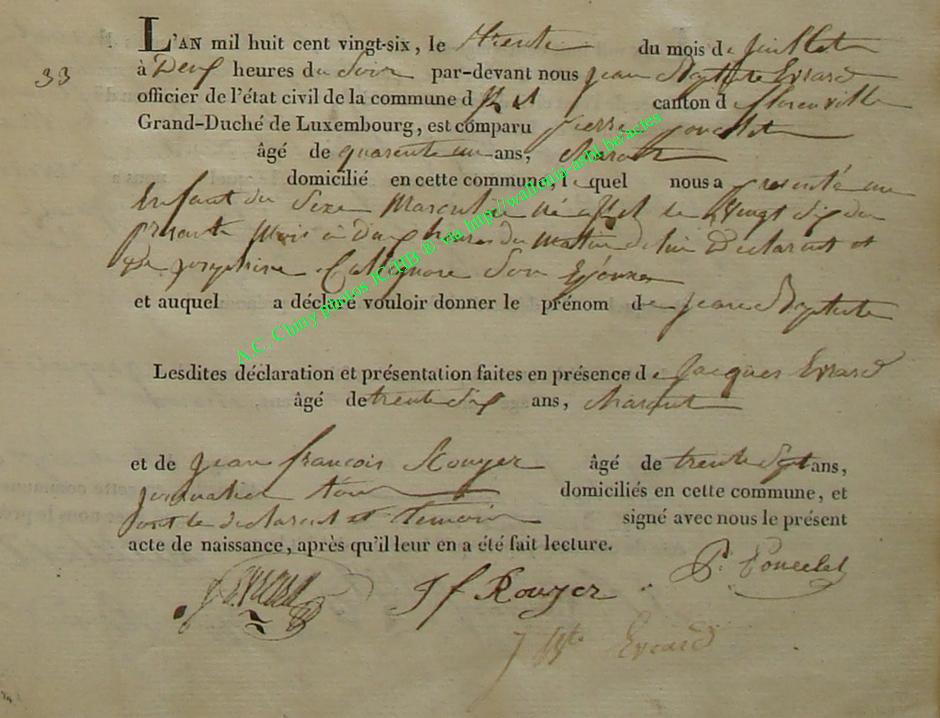 33
L'AN mil huit cent vingt-six, le trente du mois de juillet
à Deux heures du Soir par-devant nous jean Baptiste Evrard
officier de l'état civil de la commune d canton de florenville
Grand-Duché de Luxembourg, est comparu pierre poncelet
âgé de quarente un ans, charon
domicilié en cette commune, lequel nous a presenté un
Enfant du Sexe Masculin né le Vingt du
présent Mois à heures du Matin de lui Declarant et
de josephine Son Epouse
et auquel a déclaré vouloir donner le prénom de jean Baptiste
Lesdites déclaration et présentation faites en présence de Jacques Evrard
âgé de trente six ans, charon
et de jean françois Rouyer âgé de trente sept ans,
journalier domiciliés en cette commune, et
ont le declarant et temoin signé avec nous le présent
acte de naissance, après qu'il leur en a été fait lecture.
P. Poncelet
J f Rouyer
J Bte Evrard
A.C. Chiny photos JCHB ® via http://wallonia-asbl.be/actes